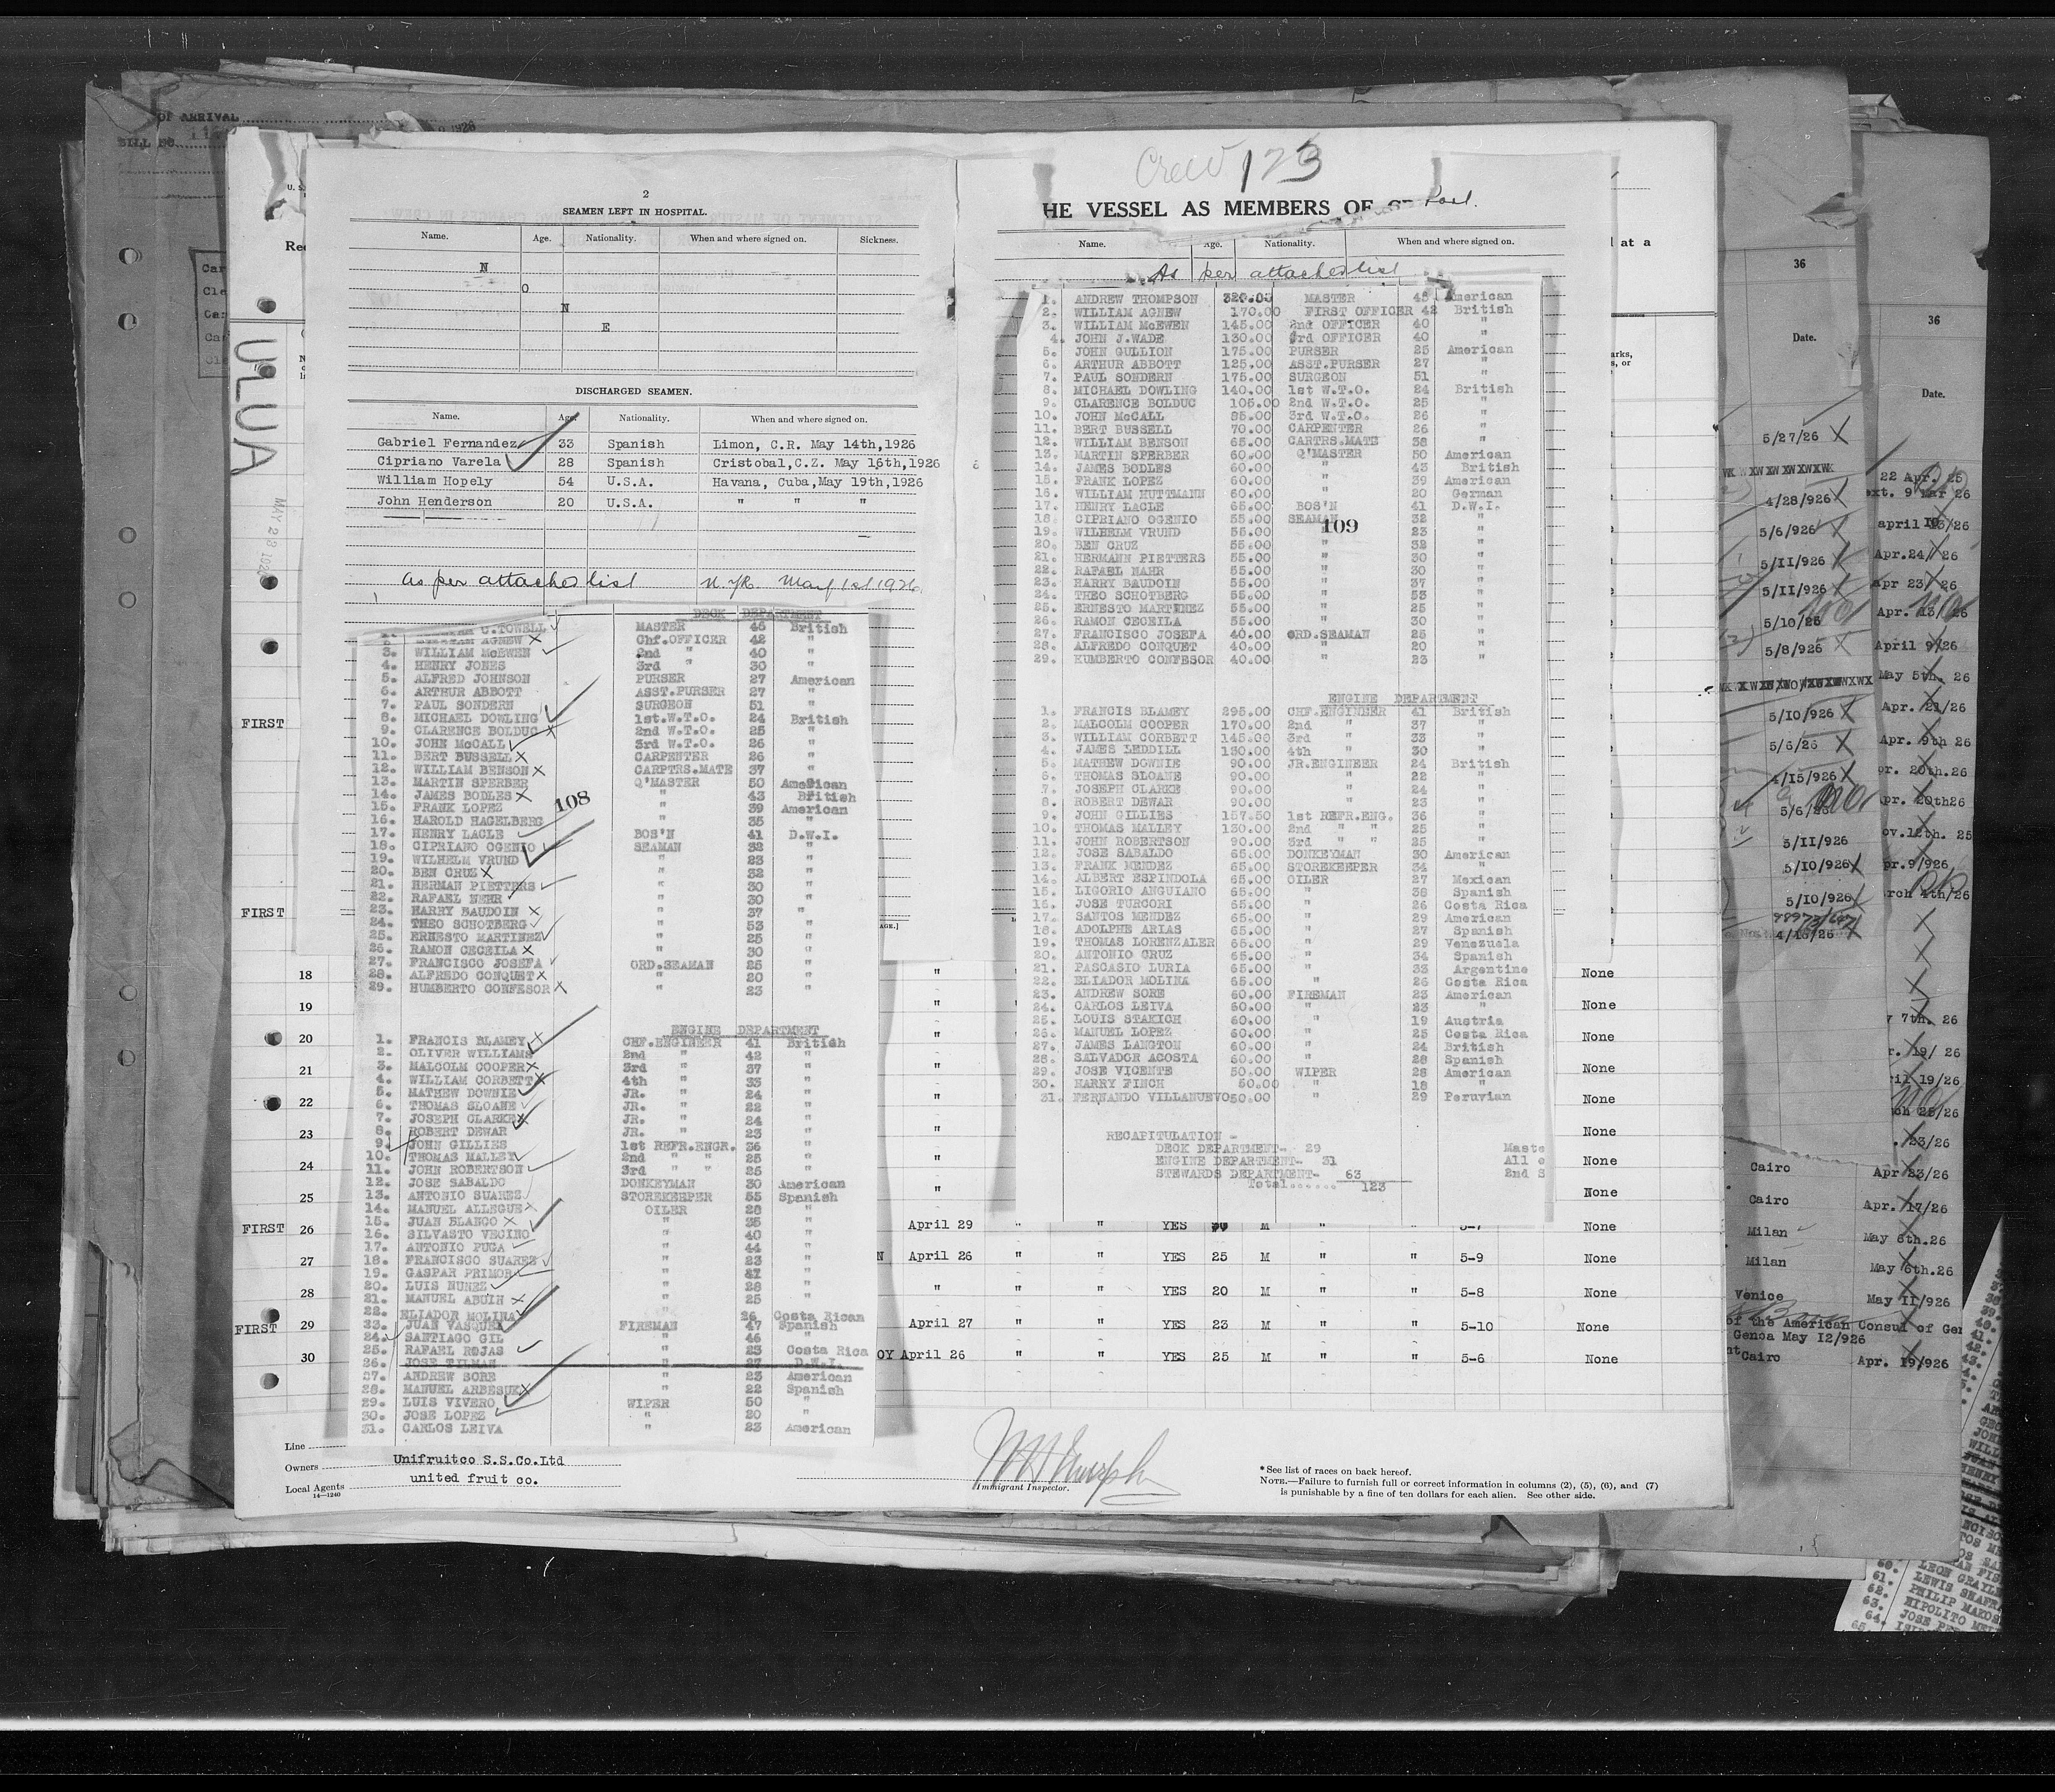 OF ARRIVAL
BILL NO.
ULUA
MAY 28 1926
2
SEAMEN LEFT IN HOSPITAL.
Name. Age. Nationality. When and where signed on. Sickness.
N
O
N
E
DISCHARGED SEAMEN.
Name. Age. Nationality. When and where signed on.
Gabriel Fernandez 33 Spanish Limon, C.R. May 14th,1926
Cipriano Varela 28 Spanish Cristobal,C.Z. May 16th,1926
William Hopely 54 U.S.A. Havana, Cuba,May 19th,1926
John Henderson 20 U.S.A. " " "
as per attached list N.Yk. May 1st 1926
DECK DEPARTMENT
C.TOWELL MASTER 46 British
AGNEW Chf.OFFICER 42 "
3. WILLIAM McEWEN 2nd " 40 "
4. HENRY JONES 3rd " 30 "
5. ALFRED JOHNSON PURSER 27 American
6. ARTHUR ABBOTT ASST.PURSER 27 "
7. PAUL SONDERN SURGEON 51 "
8. MICHAEL DOWLING 1st.W.T.O. 24 British
9. CLARENCE BOLDUC 2nd W.T.O. 25 "
10. JOHN McCALL 3rd W.T.O. 26 "
11. BERT BUSSELL CARPENTER 26 "
12. WILLIAM BENSON CARPTRS.MATE 37 "
13. MARTIN SPERBER Q'MASTER 50 American
14. JAMES BODLES " 43 British
15. FRANK LOPEZ " 39 American
16. HAROLD HAGELBERG " 35 "
108
17. HENRY LACLE BOS'N 41 D.W.I.
18. CIPRIANO OGENIO SEAMAN 32 "
19. WILHELM VRUND " 23 "
20. BEN CRUZ " 32 "
21. HERMAN PIETTERS " 30 "
22. RAFAEL NEHR " 30 "
23. HARRY BAUDOIN " 37 "
24. THEO SCHOTBERG " 53 "
25. ERNESTO MARTINEZ " 25 "
26. RAMON CECEILA " 30 "
27. FRANCISCO JOSEFA ORD.SEAMAN 25 "
28. ALFREDO CONQUET " 20 "
29. HUMBERTO CONFESOR " 23 "
ENGINE DEPARTMENT
1. FRANCIS BLAMEY CHF.ENGINEER 41 British
2. OLIVER WILLIAMS 2nd " 42 "
3. MALCOLM COOPER 3rd " 37 "
4. WILLIAM CORBETT 4th " 33 "
5. MATHEW DOWNIE JR. " 24 "
6. THOMAS SLOANE JR. " 22 "
7. JOSEPH CLARKE JR. " 24 "
8. ROBERT DEWAR JR. " 23 "
9. JOHN GILLIES 1st REFR.ENGR. 36 "
10. THOMAS MALLEY 2nd " " 25 "
11. JOHN ROBERTSON 3rd " " 25 "
12. JOSE SABALDO DONKEYMAN 30 American
13. ANTONIO SUAREZ STOREKEEPER 55 Spanish
14. MANUEL ALLEGUE OILER 28 "
15. JUAN BLANCO " 35 "
16. SILVASTO VECINO " 40 "
17. ANTONIO PUGA " 44 "
18. FRANCISCO SUAREZ " 23 "
19. GASPAR PRIMOR " 47 "
20. LUIS NUNEZ " 28 "
21. MANUEL ABUIN " 25 "
22. ELIADOR MOLINA " 26 Costa Rican
23. JUAN VASQUEZ FIREMAN 47 Spanish
24. SANTIAGO GIL " 46 "
25. RAFAEL ROJAS " 23 Costa Rica
26. JOSE TILMAN " 27 D.W.I.
27. ANDREW SORE " 23 American
28. MANUEL ARBESUE " 22 Spanish
29. LUIS VIVERO WIPER 50 "
30. JOSE LOPEZ " 20 "
31. CARLOS LEIVA " 23 American
Crew 123
HE VESSEL AS MEMBERS OF
Name. Age. Nationality. When and where signed on.
As per attached list
1. ANDREW THOMPSON 320.00 MASTER 45 American
2. WILLIAM AGNEW 170.00 FIRST OFFICER 42 British
3. WILLIAM McEWEN 145.00 2nd OFFICER 40 "
4. JOHN J.WADE 130.00 3rd OFFICER 40 "
5. JOHN GULLION 175.00 PURSER 25 American
6. ARTHUR ABBOTT 125.00 ASST.PURSER 27 "
7. PAUL SONDERN 175.00 SURGEON 51 "
8. MICHAEL DOWLING 140.00 1st W.T.O. 24 British
9. CLARENCE BOLDUC 105.00 2nd W.T.O. 25 "
10. JOHN McCALL 85.00 3rd W.T.O. 26 "
11. BERT BUSSELL 70.00 CARPENTER 26 "
12. WILLIAM BENSON 65.00 CARTRS.MATE 38 "
13. MARTIN SPERBER 60.00 Q'MASTER 50 American
14. JAMES BODLES 60.00 " 43 British
15. FRANK LOPEZ 60.00 " 39 American
16. WILLIAM HUTTMANN 60.00 " 20 German
17. HENRY LACLE 65.00 BOS'N 41 D.W.I.
18. CIPRIANO OGENIO 55.00 SEAMAN 32 "
109
19. WILHELM VRUND 55.00 " 23 "
20. BEN CRUZ 55.00 " 32 "
21. HERMANN PIETTERS 55.00 " 30 "
22. RAFAEL NAHR 55.00 " 30 "
23. HARRY BAUDOIN 55.00 " 37 "
24. THEO SCHOTBERG 55.00 " 53 "
25. ERNESTO MARTINEZ 55.00 " 25 "
26. RAMON CECEILA 55.00 " 30 "
27. FRANCISCO JOSEFA 40.00 ORD.SEAMAN 25 "
28. ALFREDO CONQUET 40.00 " 20 "
29. HUMBERTO CONFESOR 40.00 " 23 "
ENGINE DEPARTMENT
1. FRANCIS BLAMEY 295.00 CHF.ENGINEER 41 British
2. MALCOLM COOPER 170.00 2nd " 37 "
3. WILLIAM CORBETT 145.00 3rd " 33 "
4. JAMES LEDDILL 130.00 4th " 30 "
5. MATHEW DOWNIE 90.00 JR.ENGINEER 24 British
6. THOMAS SLOANE 90.00 " 22 "
7. JOSEPH CLARKE 90.00 " 24 "
8. ROBERT DEWAR 90.00 " 23 "
9. JOHN GILLIES 157.50 1st REFR.ENG. 36 "
10. THOMAS MALLEY 130.00 2nd " " 25 "
11. JOHN ROBERTSON 90.00 3rd " " 25 "
12. JOSE SABALDO 65.00 DONKEYMAN 30 American
13. FRANK MENDEZ 65.00 STOREKEEPER 34 "
14. ALBERT ESPINDOLA 65.00 OILER 27 Mexican
15. LIGORIO ANGUIANO 65.00 " 38 Spanish
16. JOSE TURCORI 65.00 " 26 Costa Rica
17. SANTOS MENDEZ 65.00 " 29 American
18. ADOLPHE ARIAS 65.00 " 27 Spanish
19. THOMAS LORENZALER 65.00 " 29 Venezuela
20. ANTONIO CRUZ 65.00 " 34 Spanish
21. PASCASIO LURIA 65.00 " 33 Argentine
22. ELIADOR MOLINA 65.00 " 26 Costa Rica
23. ANDREW SORE 60.00 FIREMAN 23 American
24. CARLOS LEIVA 60.00 " 23 "
25. LOUIS STAKICH 60.00 " 19 Austria
26. MANUEL LOPEZ 60.00 " 25 Costa Rica
27. JAMES LANGTON 60.00 " 24 British
28. SALVADOR ACOSTA 60.00 " 28 Spanish
29. JOSE VICENTE 50.00 WIPER 28 American
30. HARRY FINCH 50.00 " 18 "
31. FERNANDO VILLANUEVO 50.00 " 29 Peruvian
RECAPITULATION -
DECK DEPARTMENT- 29
ENGINE DEPARTMENT- 31
STEWARDS DEPARTMENT- 63
Total...... 123
Maste
All o
2nd S
FIRST
FIRST
18 " " None
19 " " None
20 " " None
21 " " None
22 " " None
23 " " None
24 " " None
25 " " None
FIRST 26 April 29 " " YES 30 M " " 5-7 None
27 N April 26 " " YES 25 M " " 5-9 None
28 " " " YES 20 M " " 5-8 None
FIRST 29 April 27 " " YES 23 M " " 5-10 None
30 OY April 26 " " YES 25 M " " 5-6 None
Line
Owners Unifruitco S.S.Co.Ltd
Local Agents united fruit co.
14—1240
Immigrant Inspector.
* See list of races on back hereof.
NOTE.—Failure to furnish full or correct information in columns (2), (5), (6), and (7)
is punishable by a fine of ten dollars for each alien. See other side.
at a
36
Date.
5/27/26
4/28/926
5/6/926
5/11/926
5/11/926
5/10/26
5/8/926
5/10/926
5/6/26
4/15/926
5/6/26
5/11/926
5/10/926
5/10/926
4/16/26
36
Date.
22 Apr. 25
ext. 9 Mar 26
april 13/26
Apr.24/ 26
Apr 23/ 26
Apr. 13/ 26
April 9/26
May 5th. 26
Apr. 21/26
Apr. 9th 26
pr. 20th.26
pr. 20th26
ov.12th. 25
pr.9/926
arch 4th/26
y 7th. 26
r. 19/ 26
ril 19/26
rch 25/26
. 23/26
Cairo Apr 23/26
Cairo Apr. 17/26
Milan May 6th.26
Milan May 6th.26
Venice May 11/926
of the American Consul of Gen
Genoa May 12/926
Cairo Apr. 19/926
60. LEON GRAYLE
61. LEWIS SHAFRA
62. PHILIP MAKOS
63. HIPOLITO MEL
64. JOSE PE